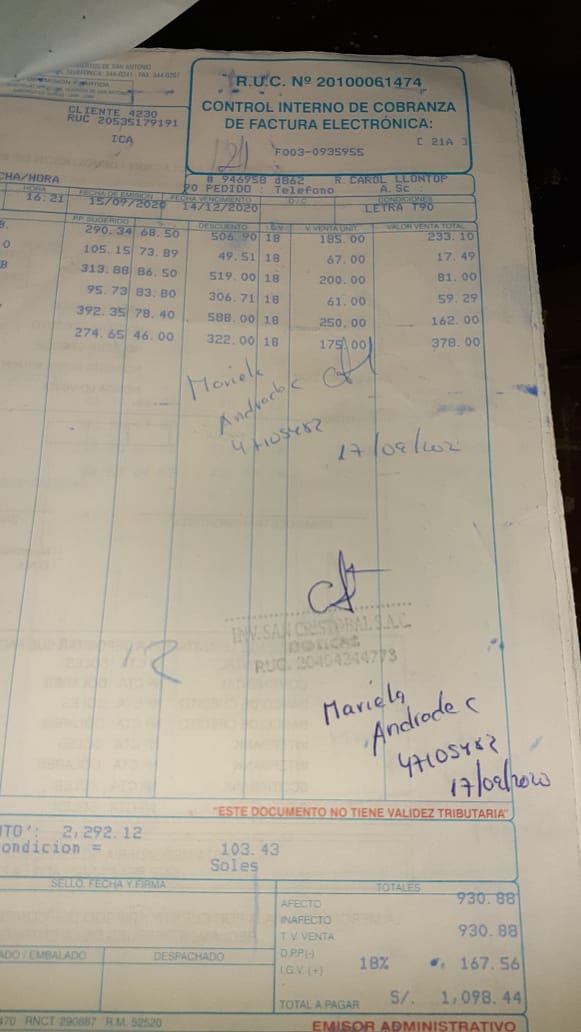 R.U.C. Nº 20100061474
CONTROL INTERNO DE COBRANZA
DE FACTURA ELECTRÓNICA:
[ 21A ]
F003-0935955
CLIENTE 4230
RUC 20535179191
ICA
# 946958 d862 R. CAROL LLONTOP
PO PEDIDO : Telefono A. Sc :
CHA/HORA
HORA FECHA DE EMISION FECHA VENCIMIENTO CONDICIONES
16:21 15/09/2020 14/12/2020 LETRA T90
P.P. SUGERIDO % DESCUENTO I.G.V V. VENTA UNIT. VALOR VENTA TOTAL
290.34 68.50 506.90 18 185.00 233.10
105.15 73.89 49.51 18 67.00 17.49
313.88 86.50 519.00 18 200.00 81.00
95.73 83.80 306.71 18 61.00 59.29
392.35 78.40 588.00 18 250.00 162.00
274.65 46.00 322.00 18 175.00 378.00
Mariela
Andrade C
47105482
17/09/202
INV. SAN CRISTOBAL S.A.C.
BOTICAS
RUC. 20494344773
Mariela
Andrade C
47105482
17/09/2020
"ESTE DOCUMENTO NO TIENE VALIDEZ TRIBUTARIA"
NTO': 2,292.12
ondicion = 103.43
Soles
SELLO, FECHA Y FIRMA
TOTALES
AFECTO 930.88
INAFECTO
T. V. VENTA 930.88
D.P.P.(-)
I.G.V. (+) 18% 167.56
TOTAL A PAGAR S/. 1,098.44
ADO / EMBALADO DESPACHADO
470 RNCT 290887 R.M. 52520
EMISOR ADMINISTRATIVO